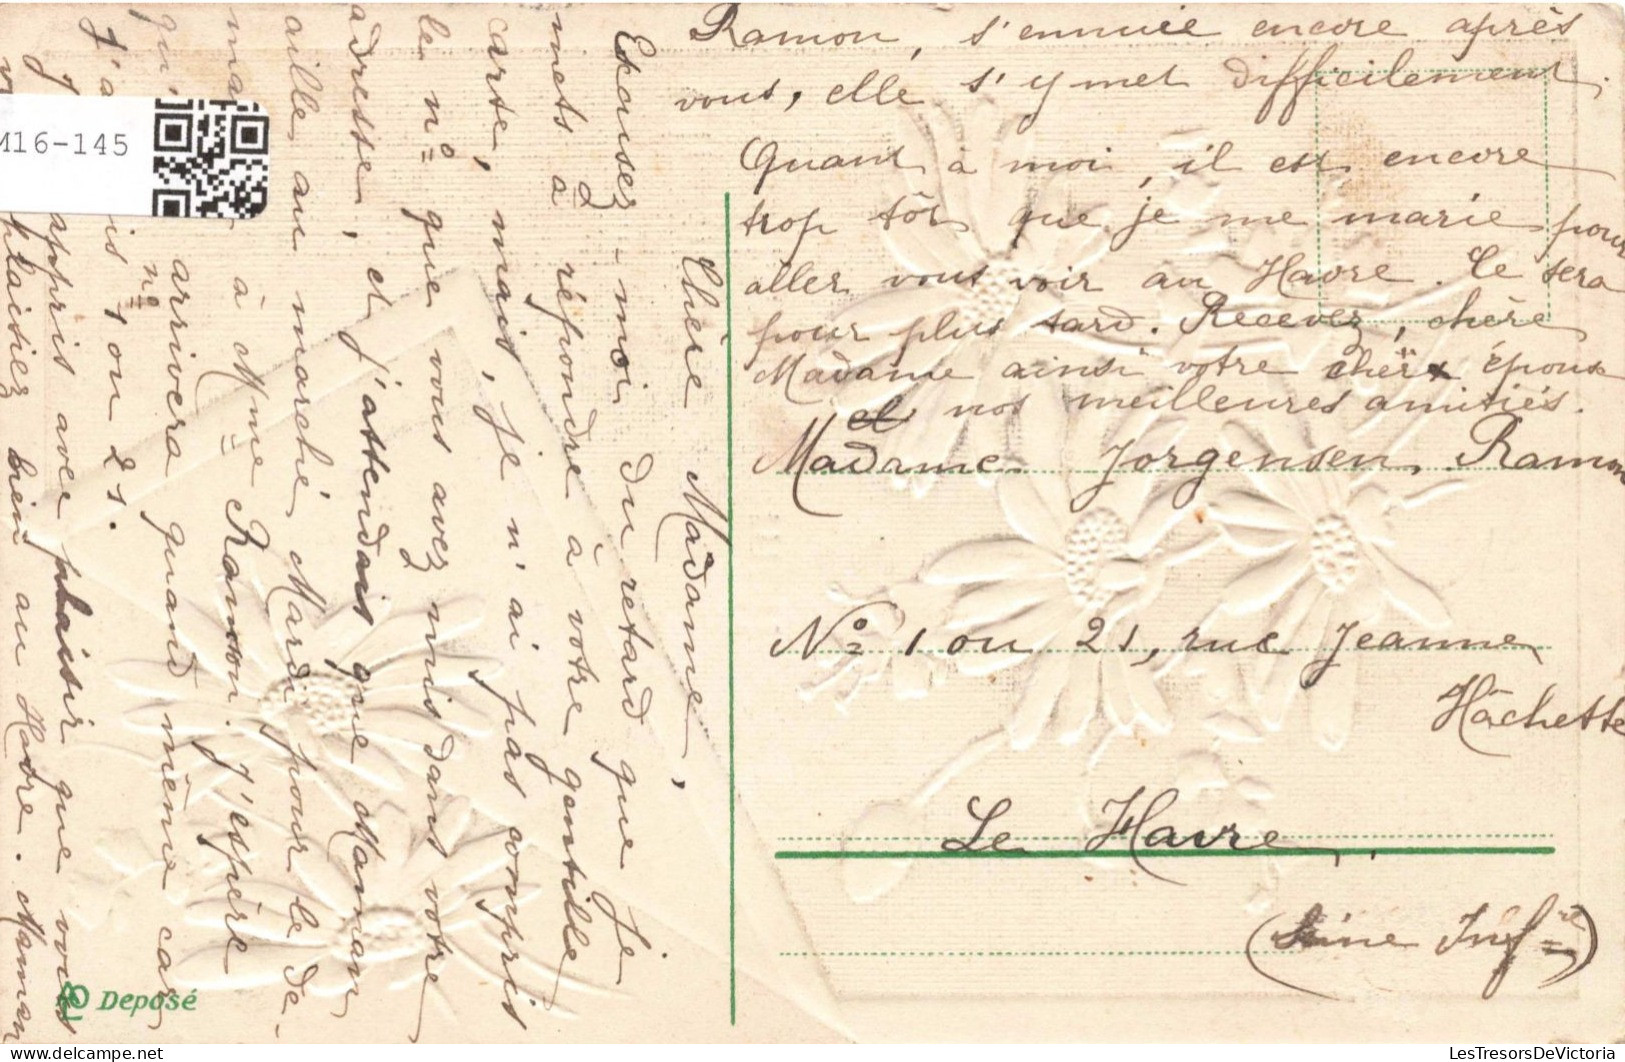 Chère Madame,
Excusez-moi du retard que je
mets à répondre à votre gentille
carte, mais, je n'ai pas compris
le nº que vous avez mis dans votre
adresse, et j'attendais que Maman
aille au marché Mardi pour le de-
à Mme Ramon. J'espère
arrivera quand même car
nº 1 ou 21.
appris avec plaisir que vous
plaisiez bien au Havre. Maman
Ramon, s'ennuie encore après
vous, elle s'y met difficilement.
Quant à moi, il est encore
trop tôt que je me marie pour
aller vous voir au Havre. Ce sera
pour plus tard. Recevez, chère
Madame ainsi votre cher époux
et nos meilleures amitiés.
Madame Jorgensen, Ramon
Nº 1 ou 21, rue Jeanne
Hâchette
Le Havre
(Seine Infre)
Deposé
M16-145
LesTresorsDeVictoria